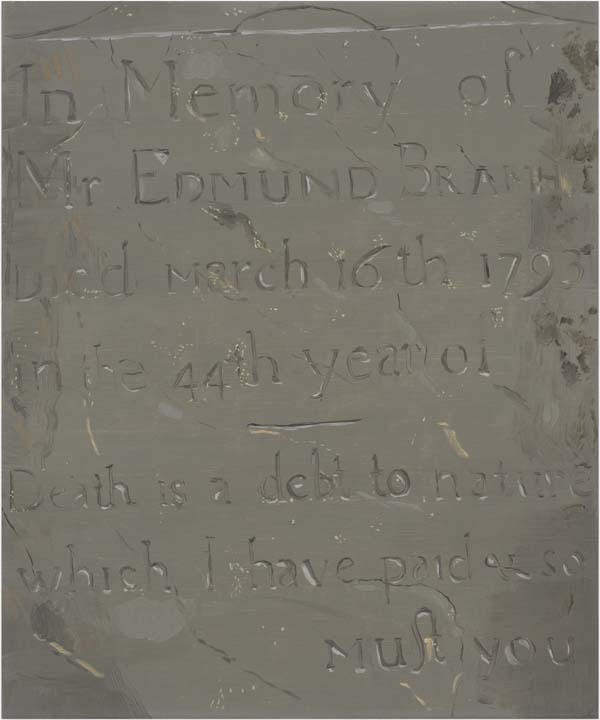 In Memory of
Mr EDMUND
Died March 16th 1793
in the 44th year of
Death is a debt to nature
which I have paid & so
Muſt you